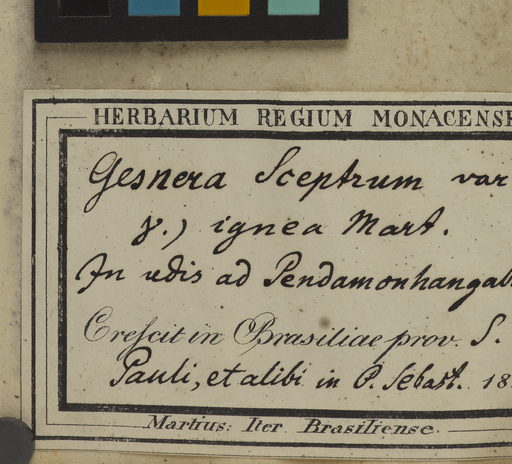 HERBARIUM REGIUM MONACENSE
Gesnera Sceptrum var
γ.) ignea Mart.
In udis ad Pendamonhangab
Crescit in Brasiliae prov. S.
Pauli, et alibi in P. Sebast. 18
Martius: Iter Brasiliense.